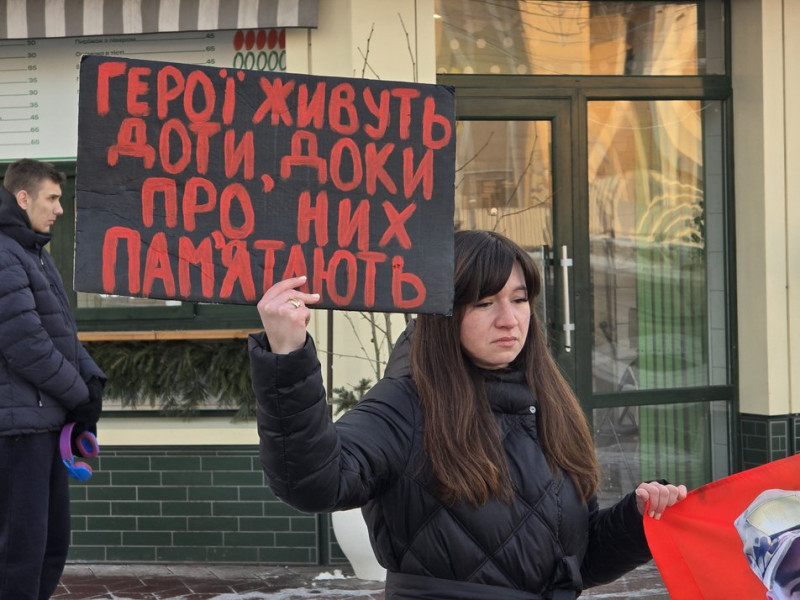 ГЕРОЇ ЖИВУТЬ
ДОТИ, ДОКИ
ПРО НИХ
ПАМ'ЯТАЮТЬ